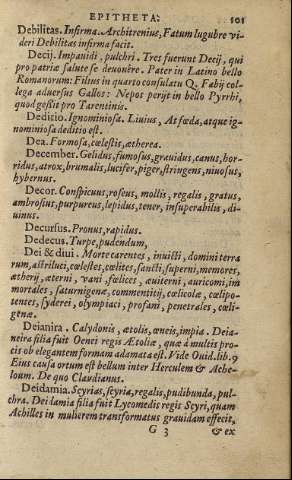 EPITHETA. 101
Debilitas. Infirma. Architrenius, Fatum lugubre vi-
deri Debilitas infirma facit.
Decij. Impauidi, pulchri. Tres fuerunt Decij, qui
pro patria salute se deuouêre. Pater in Latino bello
Romanorum: Filius in quarto consulatu Q. Fabij col-
lega aduersus Gallos: Nepos perijt in bello Pyrrhi,
quod geßit pro Tarentinis.
Deditio. Ignominiosa. Liuius, At fœda, atque ig-
nominiosa deditio est.
Dea. Formosa, cœlestis, ætherea.
December. Gelidus, fumosus, grauidus, canus, hor-
ridus, atrox, brumalis, lucifer, piger, stringens, niuosus,
hybernus.
Decor. Conspicuus, roseus, mollis, regalis, gratus,
ambrosius, purpureus, lepidus, tener, insuperabilis, di-
uinus.
Decursus. Pronus, rapidus.
Dedecus. Turpe, pudendum,
Dei & diui. Morte carentes, inuisi, domini terra
rum, astriluci, cœlestes, cœlites, sancti, superni, memores,
ætherij, æterni, vani, fœlices, æuiterni, auricomi, im
mortales, saturnigenæ, commentitij, cœlicolæ, cœlipo-
tentes, syderei, olympiaci, profani, penetrales, cœli-
genæ.
Deianira. Calydonis, ætolis, œneis, impia. Deia-
neira filia fuit Oenei regis Ætoliæ, quæ à multis pro-
cis ob elegantem formam adamata est. Vide Ouid. lib. 9
Eius causa ortum est bellum inter Herculem & Ache-
loum. De quo Claudianus.
Deidamia. Scyrias, scyria, regalis, pudibunda, pul-
chra. Deidamia filia fuit Lycomedis regis Scyri, quam
Achilles in mulierem transformatus grauidam effecit,
G 3 & ex